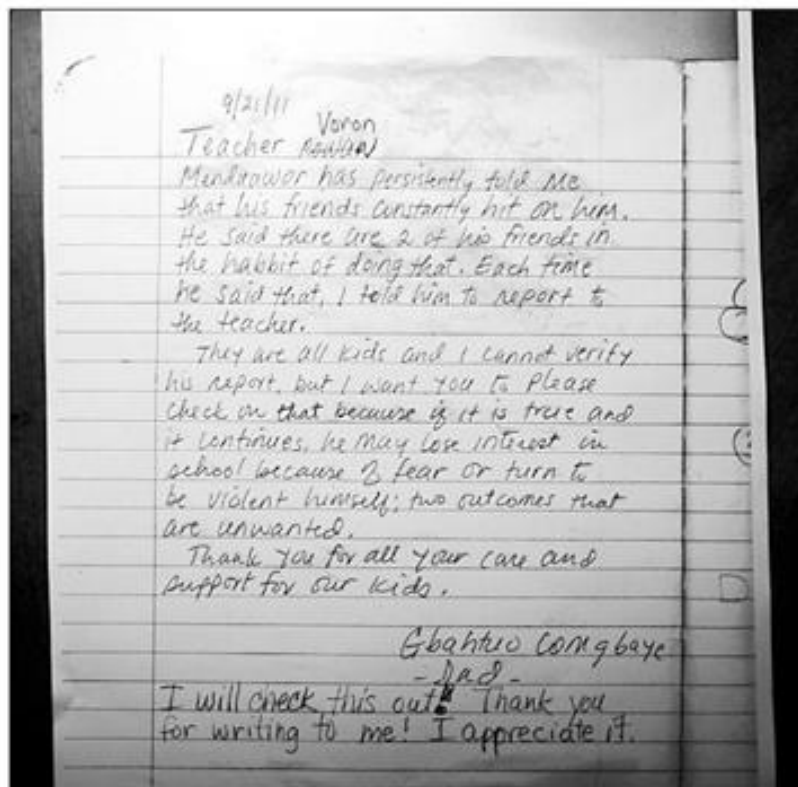 9/21/11
Voron
Teacher
Mendaawor has persistently told me
that his friends constantly hit on him.
He said there are 2 of his friends in
the habbit of doing that. Each time
he said that, I told him to report to
the teacher.
They are all kids and I cannot verify
his report, but I want you to please
check on that because if it is true and
it continues, he may lose interest in
school because of fear or turn to
be violent himself; two outcomes that
are unwanted.
Thank you for all your care and
support for our kids.
Gbahtuo Comgbaye
- Dad -
I will check this out! Thank you
for writing to me! I appreciate it.